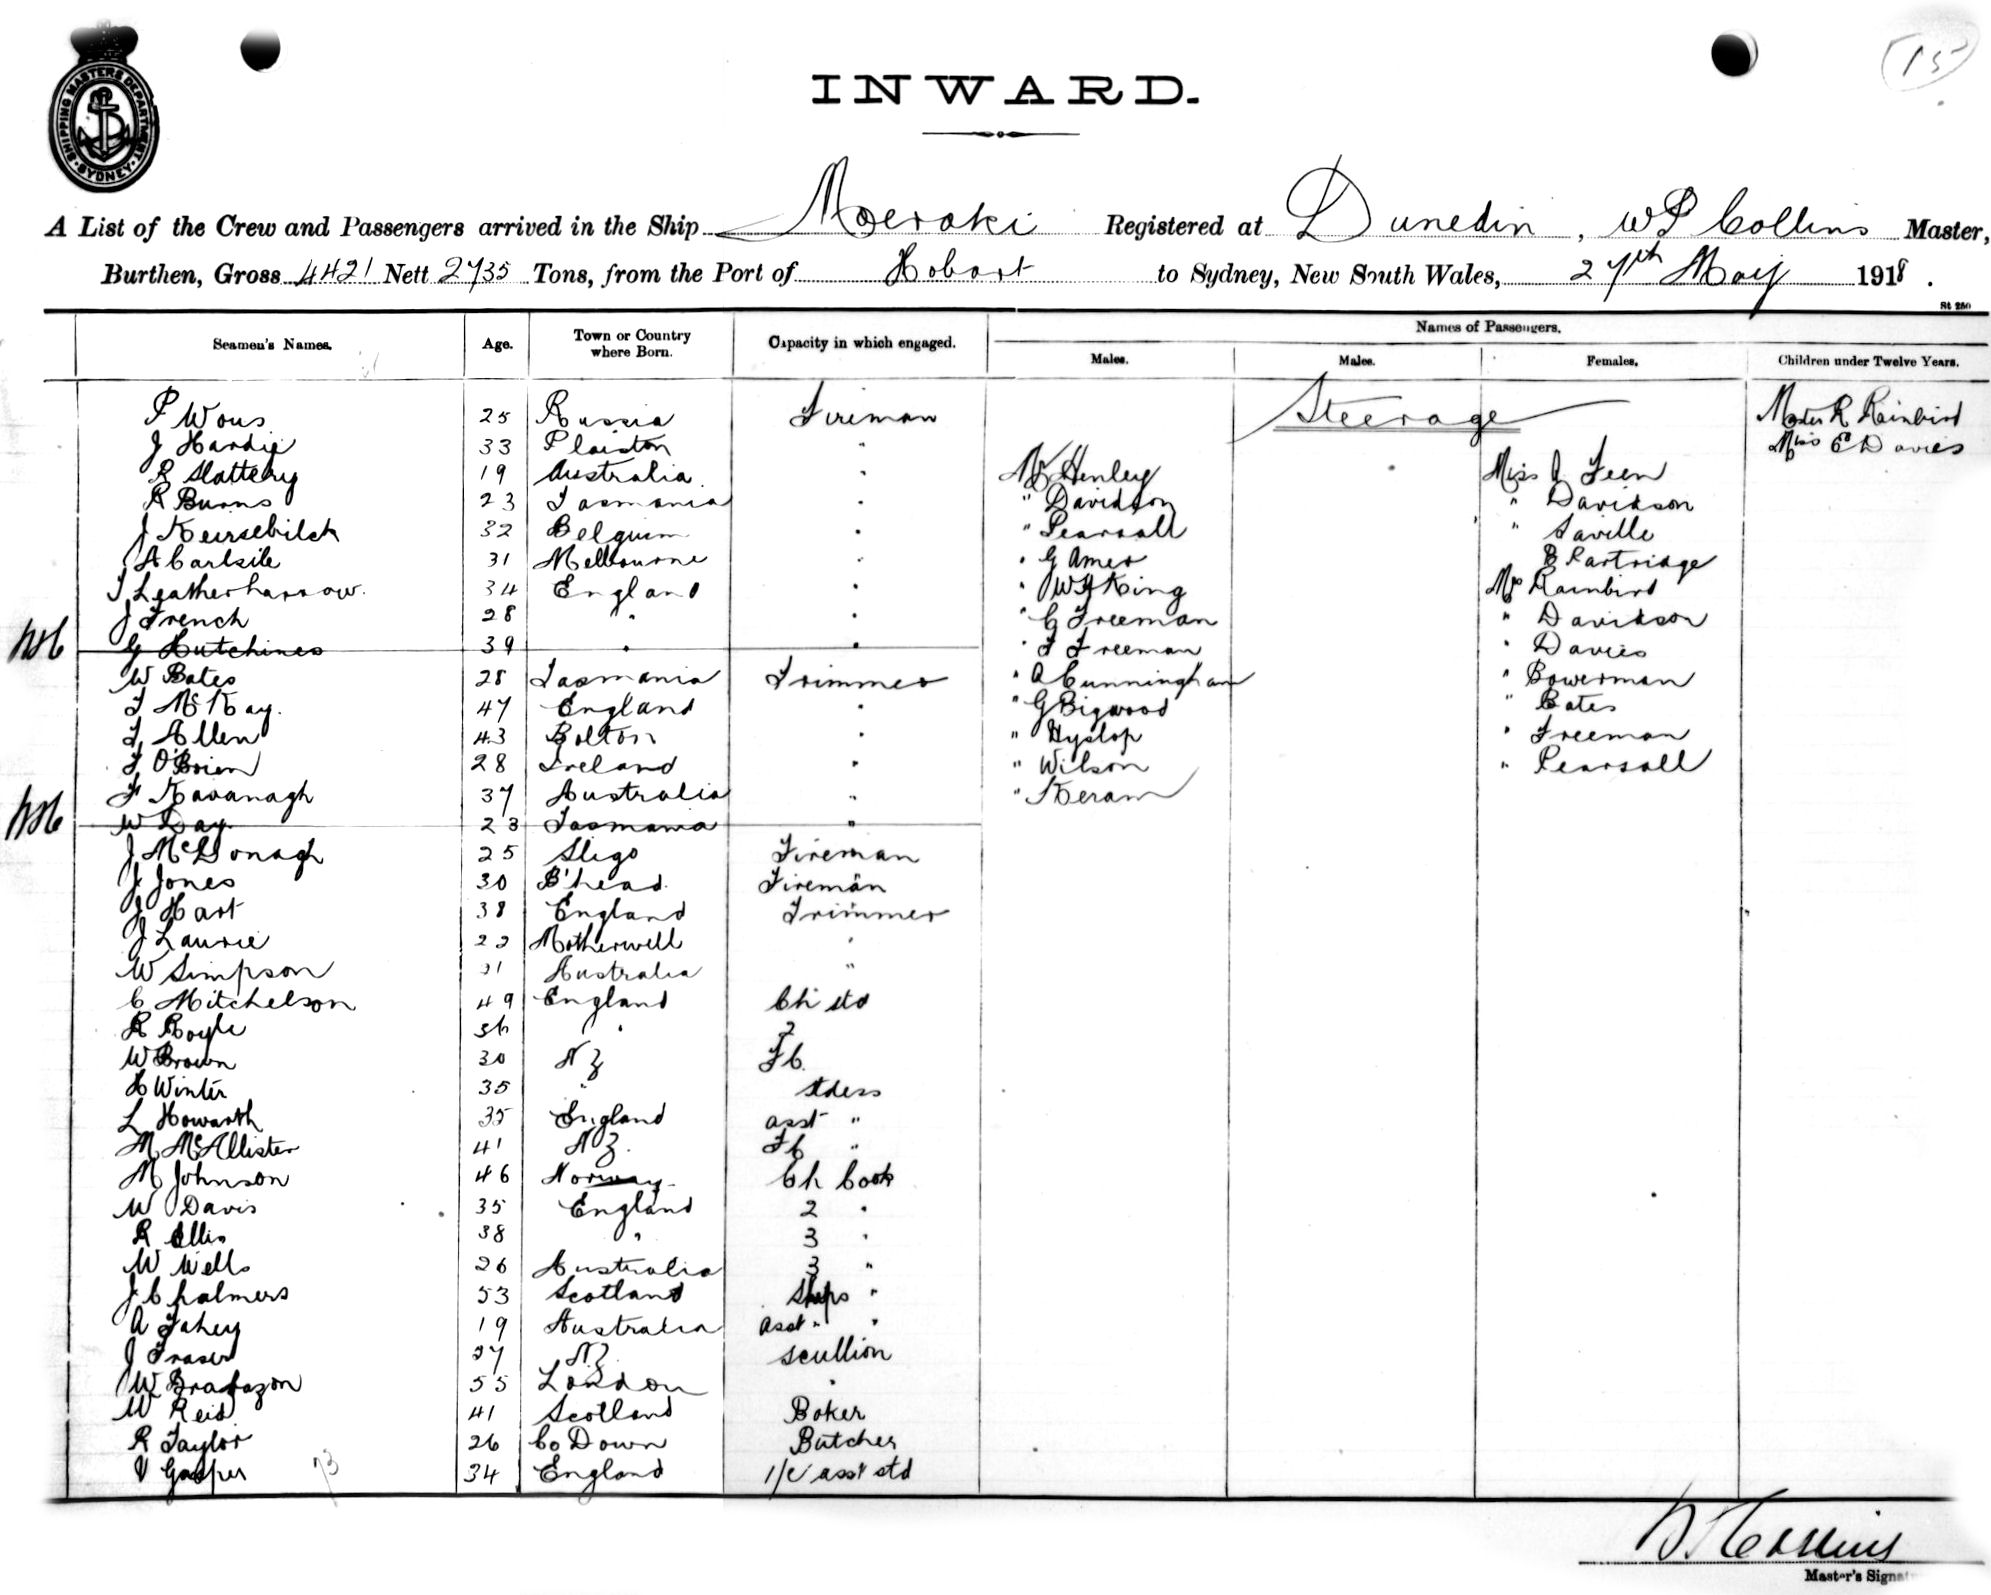 SHIPPING MASTERS DEPARTMENT SYDNEY
15
INWARD.
A List of the Crew and Passengers arrived in the Ship Moeraki Registered at Dunedin, W P Collins Master,
Burthen, Gross 4421 Nett 2735 Tons, from the Port of Hobart to Sydney, New South Wales, 27th May 1918.
St 250
Seamen's Names. Age. Town or Country where Born. Capacity in which engaged. Names of Passengers.
Males. Males. Females. Children under Twelve Years.
P Wous 25 Russia Fireman Steerage Master R Rainbird
J Hardie 33 Plaiston " Miss E Davies
R Slattery 19 Australia " Mr Henley Miss A Feen
R Burns 23 Tasmania " " Davidson " Davidson
J Keirsebilck 32 Belguim " " Pearsall " Saville
A Carlsile 31 Melbourne " " G Amer B Partridge
T Leatherbarrow 34 England " " W H King Mrs Rainbird
J French 28 " " " C Freeman " Davidson
G Hutchines 39 " " " F Freeman " Davies
W Bates 28 Tasmania Trimmer " A Cunningham " Bowerman
T McKay. 47 England " " G Bigwood " Bates
T Allen 43 Bolton " " Hyslop " Freeman
T O'Brien 28 Ireland " " Wilson " Pearsall
F Kavanagh 37 Australia " " Keram
W Day 23 Tasmania "
J McDonagh 25 Sligo Fireman
J Jones 30 B'head Fireman
J Hart 38 England Trimmer
J Laurie 22 Motherwell "
W Simpson 21 Australia "
C Mitchelson 49 England Ch std
R Royle 36 " 2
W Brown 30 N Z F C.
H Winter 35 " stdess
L Howarth 35 England asst "
M McAllister 41 N Z. F C "
M Johnson 46 Norway Ch Cook
W Davis 35 England 2 "
R Ellis 38 " 3 "
W Wells 26 Australia 3 "
J Chalmers 53 Scotland Ships "
A Fahey 19 Australia Asst " "
J Fraser 27 N.Z. Scullion
W Brabazon 55 London "
W Reid 41 Scotland Baker
R Taylor 26 Co Down Butcher
V Gasper 34 England 1/c asst std
73
W P Collins
Master's Signat